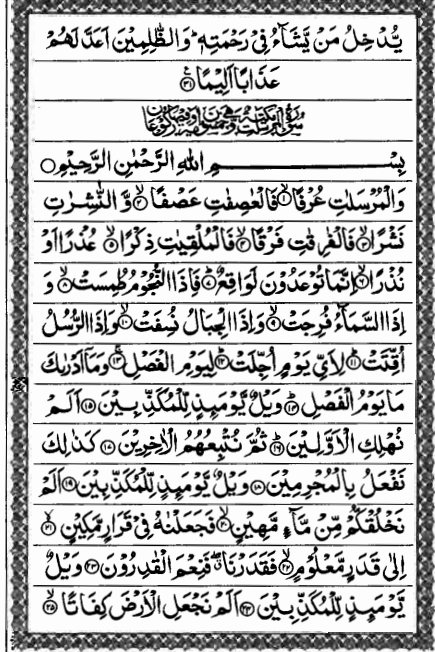 يُّدْخِلُ مَنْ يَّشَآءُ فِيْ رَحْمَتِهٖ ؕ وَالظّٰلِمِيْنَ اَعَدَّ لَهُمْ
عَذَابًا اَلِيْمًا ۳۱
سُوْرَةُ الْمُرْسَلٰتِ مَكِّيَّةٌ رُكُوْعَانِ
بِسْمِ اللهِ الرَّحْمٰنِ الرَّحِيْمِ
وَالْمُرْسَلٰتِ عُرْفًا ۱ فَالْعٰصِفٰتِ عَصْفًا ۲ وَّ النّٰشِرٰتِ
نَشْرًا ۳ فَالْفٰرِقٰتِ فَرْقًا ۴ فَالْمُلْقِيٰتِ ذِكْرًا ۵ عُذْرًا اَوْ
نُذْرًا ۶ اِنَّمَا تُوْعَدُوْنَ لَوَاقِعٌ ۷ فَاِذَا النُّجُوْمُ طُمِسَتْ ۸ وَ
اِذَا السَّمَآءُ فُرِجَتْ ۹ وَاِذَا الْجِبَالُ نُسِفَتْ ۱۰ وَاِذَا الرُّسُلُ
اُقِّتَتْ ۱۱ لِاَيِّ يَوْمٍ اُجِّلَتْ ۱۲ لِيَوْمِ الْفَصْلِ ۱۳ وَمَآ اَدْرٰىكَ
مَا يَوْمُ الْفَصْلِ ۱۴ وَيْلٌ يَّوْمَىِٕذٍ لِّلْمُكَذِّبِيْنَ ۱۵ اَلَمْ
نُهْلِكِ الْاَوَّلِيْنَ ۱۶ ثُمَّ نُتْبِعُهُمُ الْاٰخِرِيْنَ ۱۷ كَذٰلِكَ
نَفْعَلُ بِالْمُجْرِمِيْنَ ۱۸ وَيْلٌ يَّوْمَىِٕذٍ لِّلْمُكَذِّبِيْنَ ۱۹ اَلَمْ
نَخْلُقْكُّمْ مِّنْ مَّآءٍ مَّهِيْنٍ ۲۰ فَجَعَلْنٰهُ فِيْ قَرَارٍ مَّكِيْنٍ ۲۱
اِلٰى قَدَرٍ مَّعْلُوْمٍ ۲۲ فَقَدَرْنَا ۖ فَنِعْمَ الْقٰدِرُوْنَ ۲۳ وَيْلٌ
يَّوْمَىِٕذٍ لِّلْمُكَذِّبِيْنَ ۲۴ اَلَمْ نَجْعَلِ الْاَرْضَ كِفَاتًا ۲۵